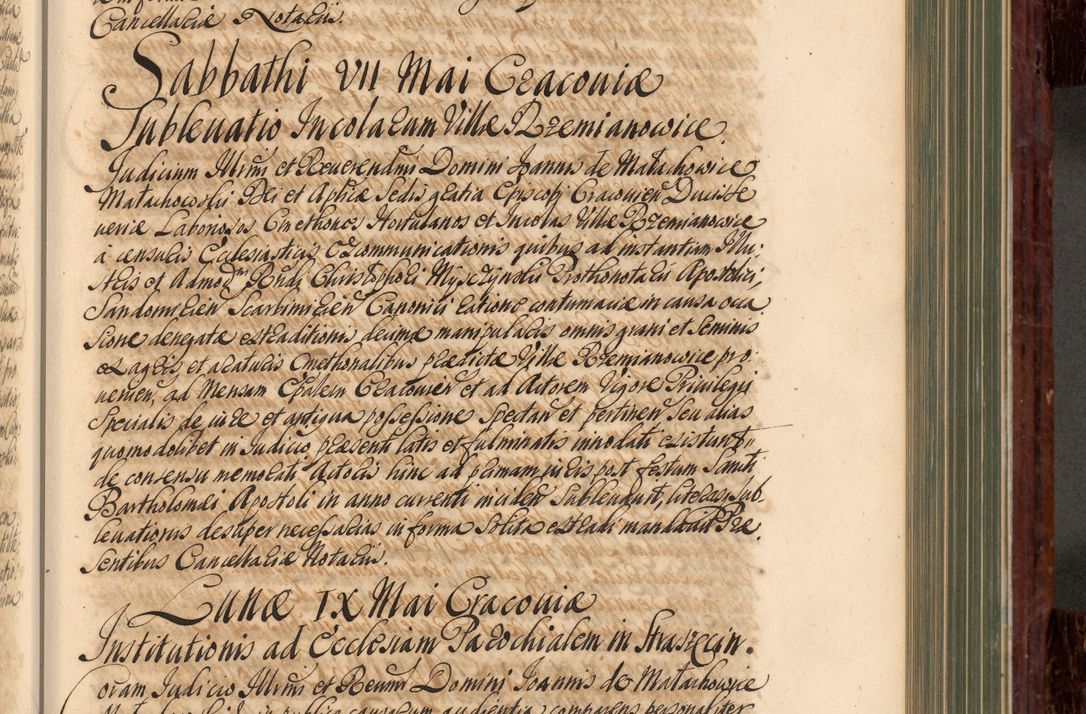 Cancellariæ Notariis.
Sabbathi VII Mai Cracoviæ
Subleuatio Incolarum Villæ Rzemianowice
Judicium Illrmi et Reuerendmi Domini Joannis de Małachowice
Małachowski Dei et Aplicæ Sedis gratia Episcopi Cracouien Ducis Se
ueriæ Laboriosos Cmethones Hortulanos et Incolas Villæ Rzemianowice
à censuris Ecclesiasticis Excommunicationis quibus ad instantiam Illu:
stris et Admod. Rndi Christoppori Prothonotarii Apostolici,
Sandomirien Scarbimirien Canonici ratione contumaciæ in causa occa
sione denegatæ extraditionis decimæ manipularis omnis grani et Seminis
ex agris et areturis Cmethonalibus prædictæ Villæ Rzemianowice pro:
uenien, ad Mensam Epalem Cracouien et ad Actorem Vigore Privilegij
Specialis de iure et antiqua possessione Spectan et pertinen Seu alias
quomodolibet in Judicio præsenti latis et fulminatis innodati existant
de consensu memorati Actoris hinc ad primam iuris post festum Sancti
Bartholomæi Apostoli in anno currenti inciden Subleuauit, literas Sub
leuationis desuper necessarias in forma Solita extradi mandauit Præ
sentibus Cancellariæ Notariis.
Lunæ IX Mai Cracoviæ
Institutionis ad Ecclesiam Parochialem in Straszęcin.
Coram Judicio Illrmi et Reumi Domini Joannis de Małachowice
in publica causarum audientia comparens personaliter